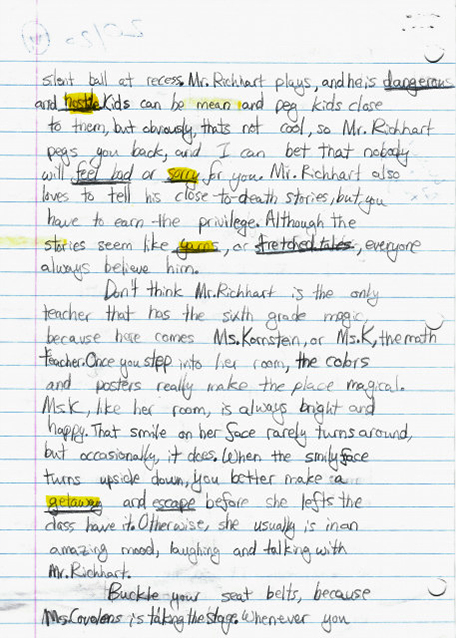 silent ball at recess. Mr. Richhart plays, and he is dangerous
and hostle. Kids can be mean and peg kids close
to them, but obviously, thats not cool, so Mr. Richhart
pegs you back, and I can bet that nobody
will feel bad or sorry for you. Mr. Richhart also
loves to tell his close-to-death stories, but you
have to earn the privilege. Although the
stories seem like yarns, or stretched tales, everyone
always believe him.
Don't think Mr. Richhart is the only
teacher that has the sixth grade magic,
because here comes Ms. Kornstein, or Ms. K, the math
teacher. Once you step into her room, the colors
and posters really make the place magical.
Ms. K, like her room, is always bright and
happy. That smile on her face rarely turns around,
but occasionally, it does. When the smily face
turns upside down, you better make a
getaway and escape before she lefts the
class have it. Otherwise, she usually is in an
amazing mood, laughing and talking with
Mr. Richhart.
Buckle your seat belts, because
Ms. Covolens is taking the stage. Whenever you